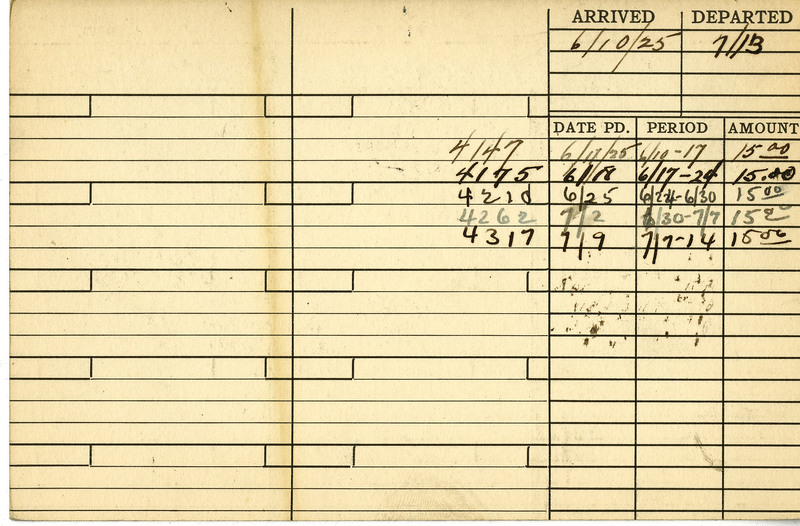 ARRIVED DEPARTED
6/10/25 7/13
DATE PD. PERIOD AMOUNT
4147 6/17/25 6/10-17 15.00
4175 6/18 6/17-24 15.00
4210 6/25 6/24-6/30 15.00
4262 7/2 6/30-7/7 15.00
4317 7/9 7/7-14 15.00